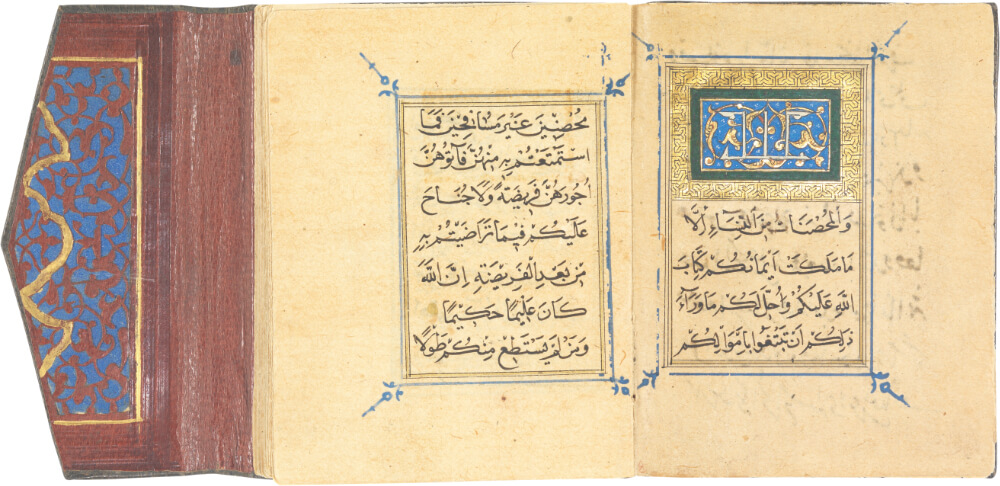 وَالْمُحْصَنَاتُ مِنَ النِّسَاءِ إِلَّا
مَا مَلَكَتْ أَيْمَانُكُمْ كِتَابَ
اللَّهِ عَلَيْكُمْ وَأُحِلَّ لَكُمْ مَا وَرَاءَ
ذَلِكُمْ أَنْ تَبْتَغُوا بِأَمْوَالِكُمْ
مُحْصِنِينَ غَيْرَ مُسَافِحِينَ فَمَا
اسْتَمْتَعْتُمْ بِهِ مِنْهُنَّ فَآتُوهُنَّ
أُجُورَهُنَّ فَرِيضَةً وَلَا جُنَاحَ
عَلَيْكُمْ فِيمَا تَرَاضَيْتُمْ بِهِ
مِنْ بَعْدِ الْفَرِيضَةِ إِنَّ اللَّهَ
كَانَ عَلِيمًا حَكِيمًا
وَمَنْ لَمْ يَسْتَطِعْ مِنْكُمْ طَوْلًا